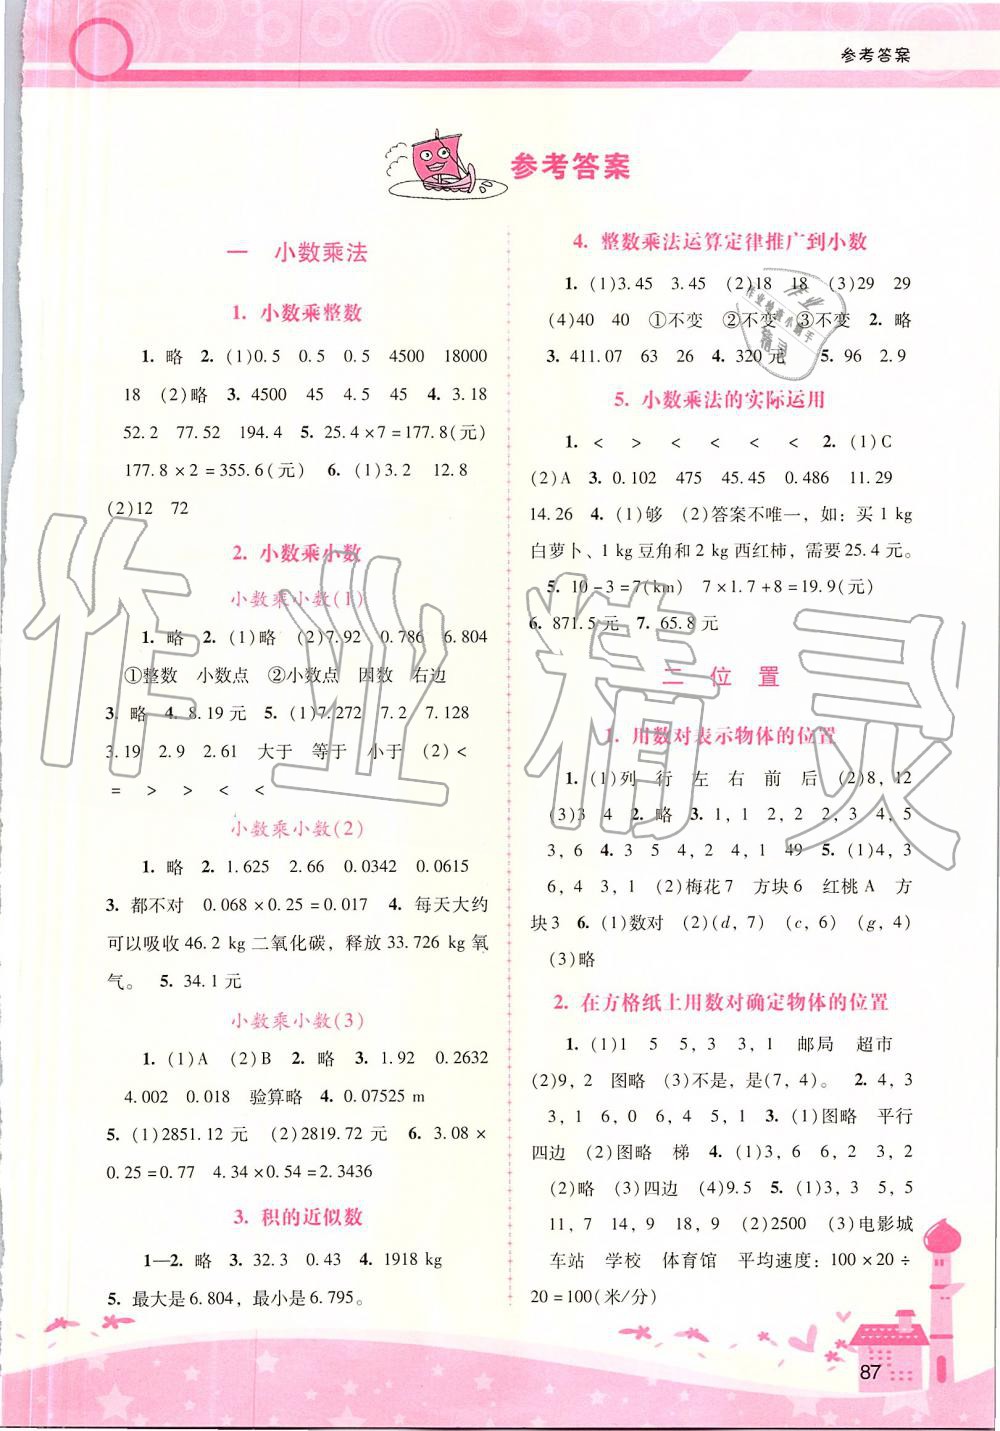 参考答案
参考答案
一 小数乘法
1. 小数乘整数
1. 略 2. (1)0.5 0.5 0.5 4500 18000
18 (2)略 3. 4500 45 4.5 45 4. 3.18
52.2 77.52 194.4 5. 25.4×7=177.8(元)
177.8×2=355.6(元) 6. (1)3.2 12.8
(2)12 72
2. 小数乘小数
小数乘小数(1)
1. 略 2. (1)略 (2)7.92 0.786 6.804
①整数 小数点 ②小数点 因数 右边
3. 略 4. 8.19元 5. (1)7.272 7.2 7.128
3.19 2.9 2.61 大于 等于 小于 (2)<
= > > < <
小数乘小数(2)
1. 略 2. 1.625 2.66 0.0342 0.0615
3. 都不对 0.068×0.25=0.017 4. 每天大约
可以吸收46.2 kg二氧化碳，释放33.726 kg氧
气。 5. 34.1元
小数乘小数(3)
1. (1)A (2)B 2. 略 3. 1.92 0.2632
4.002 0.018 验算略 4. 0.07525 m
5. (1)2851.12元 (2)2819.72元 6. 3.08×
0.25=0.77 4.34×0.54=2.3436
3. 积的近似数
1—2. 略 3. 32.3 0.43 4. 1918 kg
5. 最大是6.804，最小是6.795。
4. 整数乘法运算定律推广到小数
1. (1)3.45 3.45 (2)18 18 (3)29 29
(4)40 40 ①不变 ②不变 ③不变 2. 略
3. 411.07 63 26 4. 320元 5. 96 2.9
5. 小数乘法的实际运用
1. < > < < < < 2. (1)C
(2)A 3. 0.102 475 45.45 0.486 11.29
14.26 4. (1)够 (2)答案不唯一，如：买1 kg
白萝卜、1 kg豆角和2 kg西红柿，需要25.4元。
5. 10-3=7(km) 7×1.7+8=19.9(元)
6. 871.5元 7. 65.8元
二 位置
1. 用数对表示物体的位置
1. (1)列 行 左 右 前 后 (2)8，12
(3)3 4 2. 略 3. 1，1 2，2 2，3 4，5
3，6 4. 3 5 4，4 1 49 5. (1)4，3
6，4 3，1 (2)梅花7 方块6 红桃A 方
块3 6. (1)数对 (2)(d，7) (c，6) (g，4)
(3)略
2. 在方格纸上用数对确定物体的位置
1. (1)1 5 5，3 3，1 邮局 超市
(2)9，2 图略 (3)不是，是(7，4)。 2. 4，3
3，1 6，0 6，4 5，1 3. (1)图略 平行
四边 (2)图略 梯 4. (1)3，6 6，2 3，2
(2)略 (3)四边 (4)9.5 5. (1)3，5 5，5
11，7 14，9 18，9 (2)2500 (3)电影城
车站 学校 体育馆 平均速度：100×20÷
20=100(米/分)
作业精灵
87